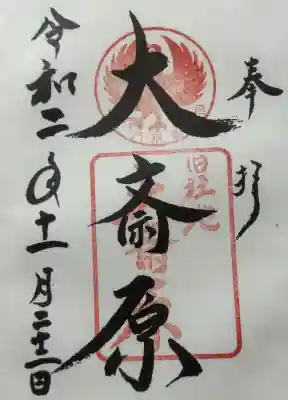 奉拝
大斎原
旧社地
大斎原
令和二年十一月二十二日